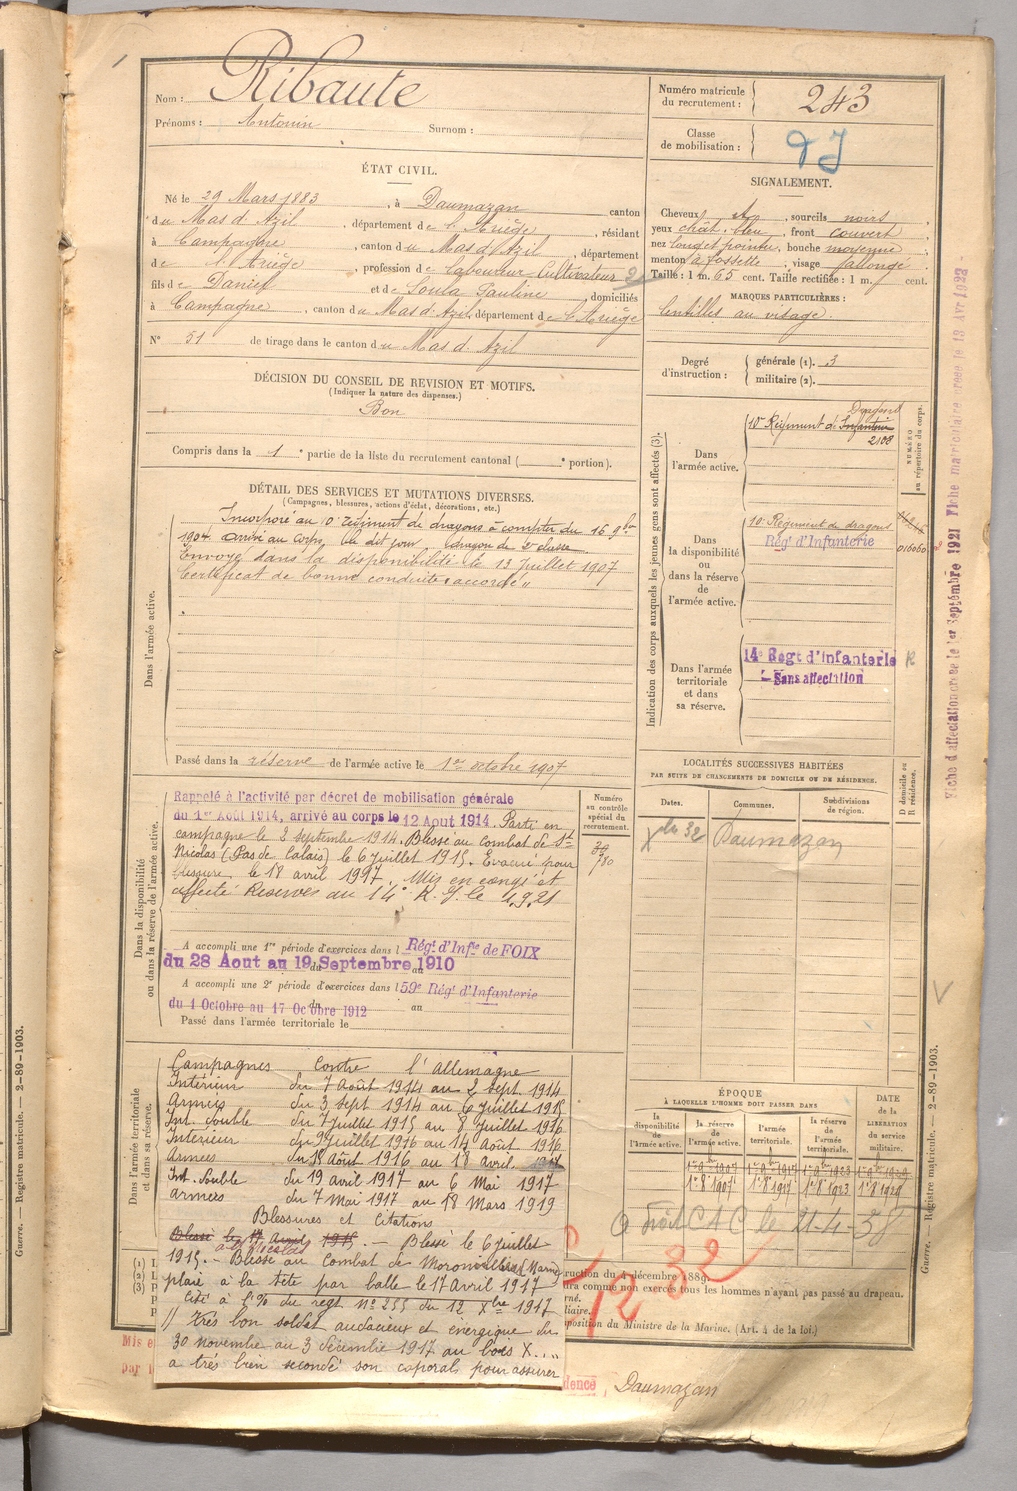 Nom : Ribaute
Prénoms : Antonin Surnom :
Numéro matricule du recrutement : 243
Classe de mobilisation :
ÉTAT CIVIL.
Né le 29 Mars 1883, à Daumazan canton
du Mas d'Azil, département de l'Ariège, résidant
à Campagne, canton du Mas d'Azil, département
de l'Ariège, profession de laboureur Cultivateur
fils de Daniel et de Soula Pauline domiciliés
à Campagne, canton du Mas d'Azil, département de l'Ariège
N° 51 de tirage dans le canton du Mas d'Azil
SIGNALEMENT.
Cheveux, sourcils noirs,
yeux chât. bleu, front couvert
nez long et pointu, bouche moyenne,
menton à fossette, visage allongé
Taille : 1 m. 65 cent. Taille rectifiée : 1 m. cent.
MARQUES PARTICULIÈRES :
lentilles au visage.
Degré d'instruction : générale (1). 3
militaire (2).
DÉCISION DU CONSEIL DE REVISION ET MOTIFS.
(Indiquer la nature des dispenses.)
Bon
Compris dans la 1e partie de la liste du recrutement cantonal ( e portion).
DÉTAIL DES SERVICES ET MUTATIONS DIVERSES.
(Campagnes, blessures, actions d'éclat, décorations, etc.)
Dans l'armée active.
Incorporé au 10e régiment de dragons à compter du 16 9bre
1904 arrivé au corps, le dit jour dragon de 2e classe
Envoyé dans la disponibilité le 13 Juillet 1907
Certificat de bonne conduite "accordé"
Passé dans la réserve de l'armée active le 1er octobre 1907
Indication des corps auxquels les jeunes gens sont affectés (3).
NUMÉRO au répertoire du corps.
Dans l'armée active.
10e Régiment de Infanterie Dragons
2108
Dans la disponibilité ou dans la réserve de l'armée active.
10e Régiment de dragons
Régt d'Infanterie
Dans l'armée territoriale et dans sa réserve.
14e Régt d'Infanterie
Sans affectation
Fiche d'affectation créée le 1er Septembre 1921 Fiche matriculaire créée le 13 Avr 1922
Dans la disponibilité ou dans la réserve de l'armée active
Rappelé à l'activité par décret de mobilisation générale
du 1er Août 1914, arrivé au corps le 12 Août 1914. Parti en
campagne le 2 septembre 1914. Blessé au combat de St
Nicolas (Pas de Calais) le 6 juillet 1915. Evacué pour
blessure le 18 avril 1917. Mis en congé et
affecté Reserves du 14e R. I. le 1.9.21
Numéro au contrôle spécial du recrutement.
A accompli une 1re période d'exercices dans l Régt d'Infie de FOIX
du 28 Aout au 19 Septembre 1910
A accompli une 2e période d'exercices dans l 59e Régt d'Infanterie
du 1 Octobre au 17 Octobre 1912
Passé dans l'armée territoriale le
LOCALITÉS SUCCESSIVES HABITÉES
PAR SUITE DE CHANGEMENTS DE DOMICILE OU DE RÉSIDENCE.
Dates. Communes. Subdivisions de région. D domicile ou R résidence.
Xbre 32 Daumazan
Dans l'armée territoriale et dans sa réserve.
Campagnes contre l'Allemagne
Intérieur du 7 Août 1914 au 2 Sept. 1914
Armées du 3 Sept 1914 au 6 Juillet 1915
Int. double du 7 Juillet 1915 au 8 Juillet 1916
Intérieur du 9 Juillet 1916 au 14 Août 1916
Armées du 15 Août 1916 au 18 Avril 1917
Int. double du 19 avril 1917 au 6 Mai 1917
Armées du 7 Mai 1917 au 18 Mars 1919
Blessures et Citations
Blessé le 17 avril 1915. — Blessé le 6 juillet
1915. — Blessé au combat de Moronvilliers Marne
plaie à la tête par balle le 17 Avril 1917
Cité à l'% du régt N° 255 du 12 Xbre 1917
// très bon soldat audacieux et énergique du
30 novembre au 3 décembre 1917 au bois X....
a très bien secondé son caporal pour assurer
ÉPOQUE
À LAQUELLE L'HOMME DOIT PASSER DANS
la disponibilité de l'armée active. la réserve de l'armée active. l'armée territoriale. la réserve de l'armée territoriale.
DATE de la LIBÉRATION du service militaire.
1er 9bre 1907 1er 9bre 1917 1er 9bre 1923 1er 9bre 1929
1er 8 1907 1er 8 1917 1er 8 1923 1er 8 1929
CAC le 21-4-38
12-32
ruction du 4 décembre 1889.
ura comme non exercés tous les hommes n'ayant pas passé au drapeau.
position du Ministre de la Marine. (Art. 4 de la loi.)
dence Daumazan
Guerre. — Registre matricule. — 2-89-1903.
Guerre. — Registre matricule. — 2-89-1903.